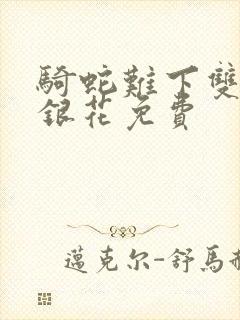 騎蛇難下雙
銀花免費
邁克尔-舒馬赫